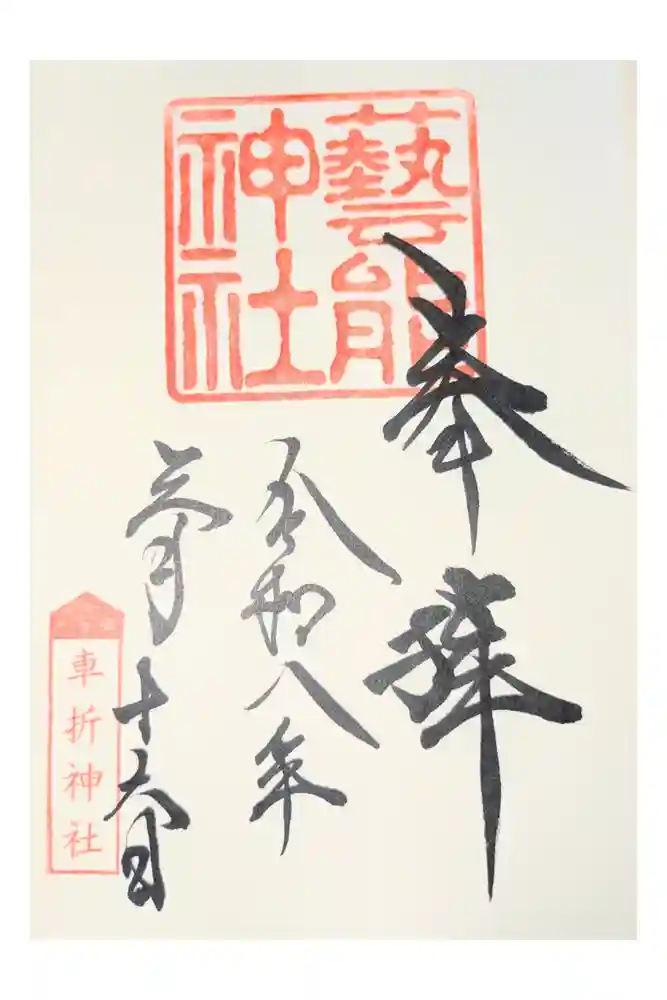 奉拝
藝能
神社
令和八年
三月十六日
車折神社